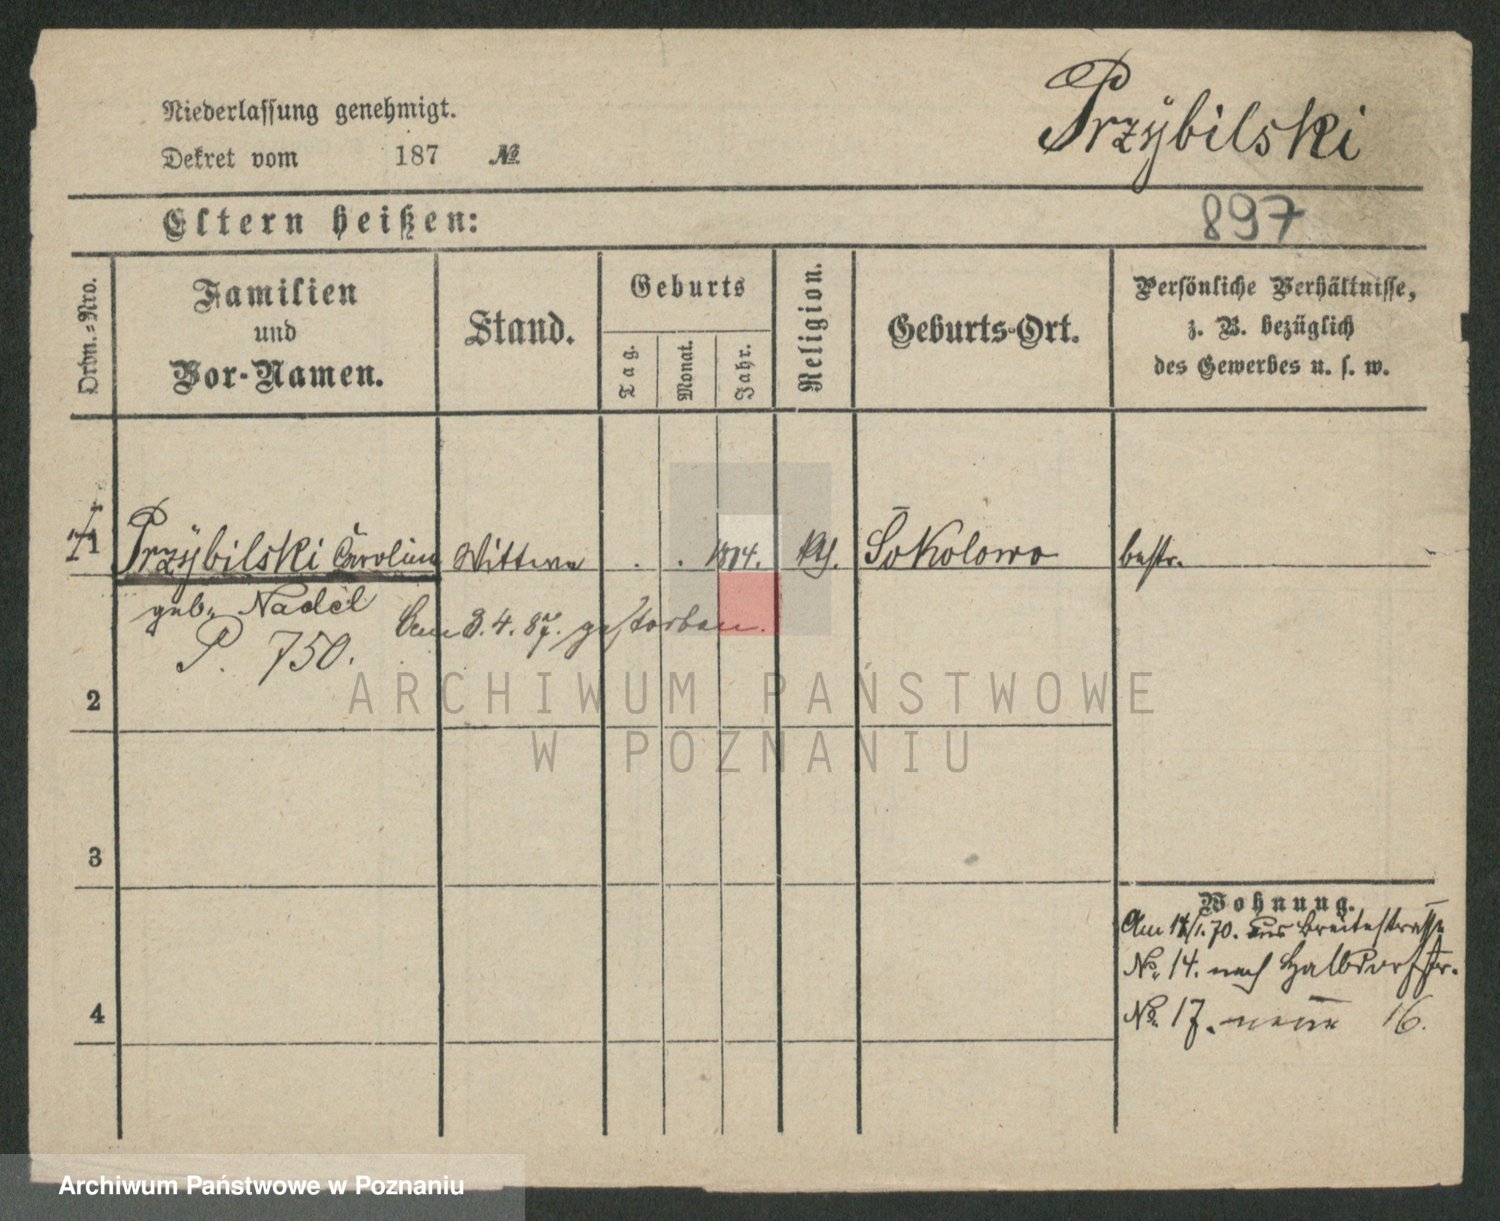 Niederlassung genehmigt.
Dekret vom 187 №
Przÿbilski
Eltern heißen:
897
Ordn.-Nro.
Familien
und
Vor-Namen.
Stand.
Geburts
Tag.
Monat.
Jahr.
Religion.
Geburts-Ort.
Persönliche Verhältnisse,
z. B. bezüglich
des Gewerbes u. s. w.
1 Przÿbilski Carolina Wittwe . . 1804. kth. Sokolowo
geb. Nadel
Am 3.4.87. gestorben.
P. 750.
2
3
4
Wohnung.
Am 14/1.70. aus Breitestrasse
No. 14. nach Halbdorfstr.
No. 17. neue 16.
ARCHIWUM PAŃSTWOWE
W POZNANIU
Archiwum Państwowe w Poznaniu